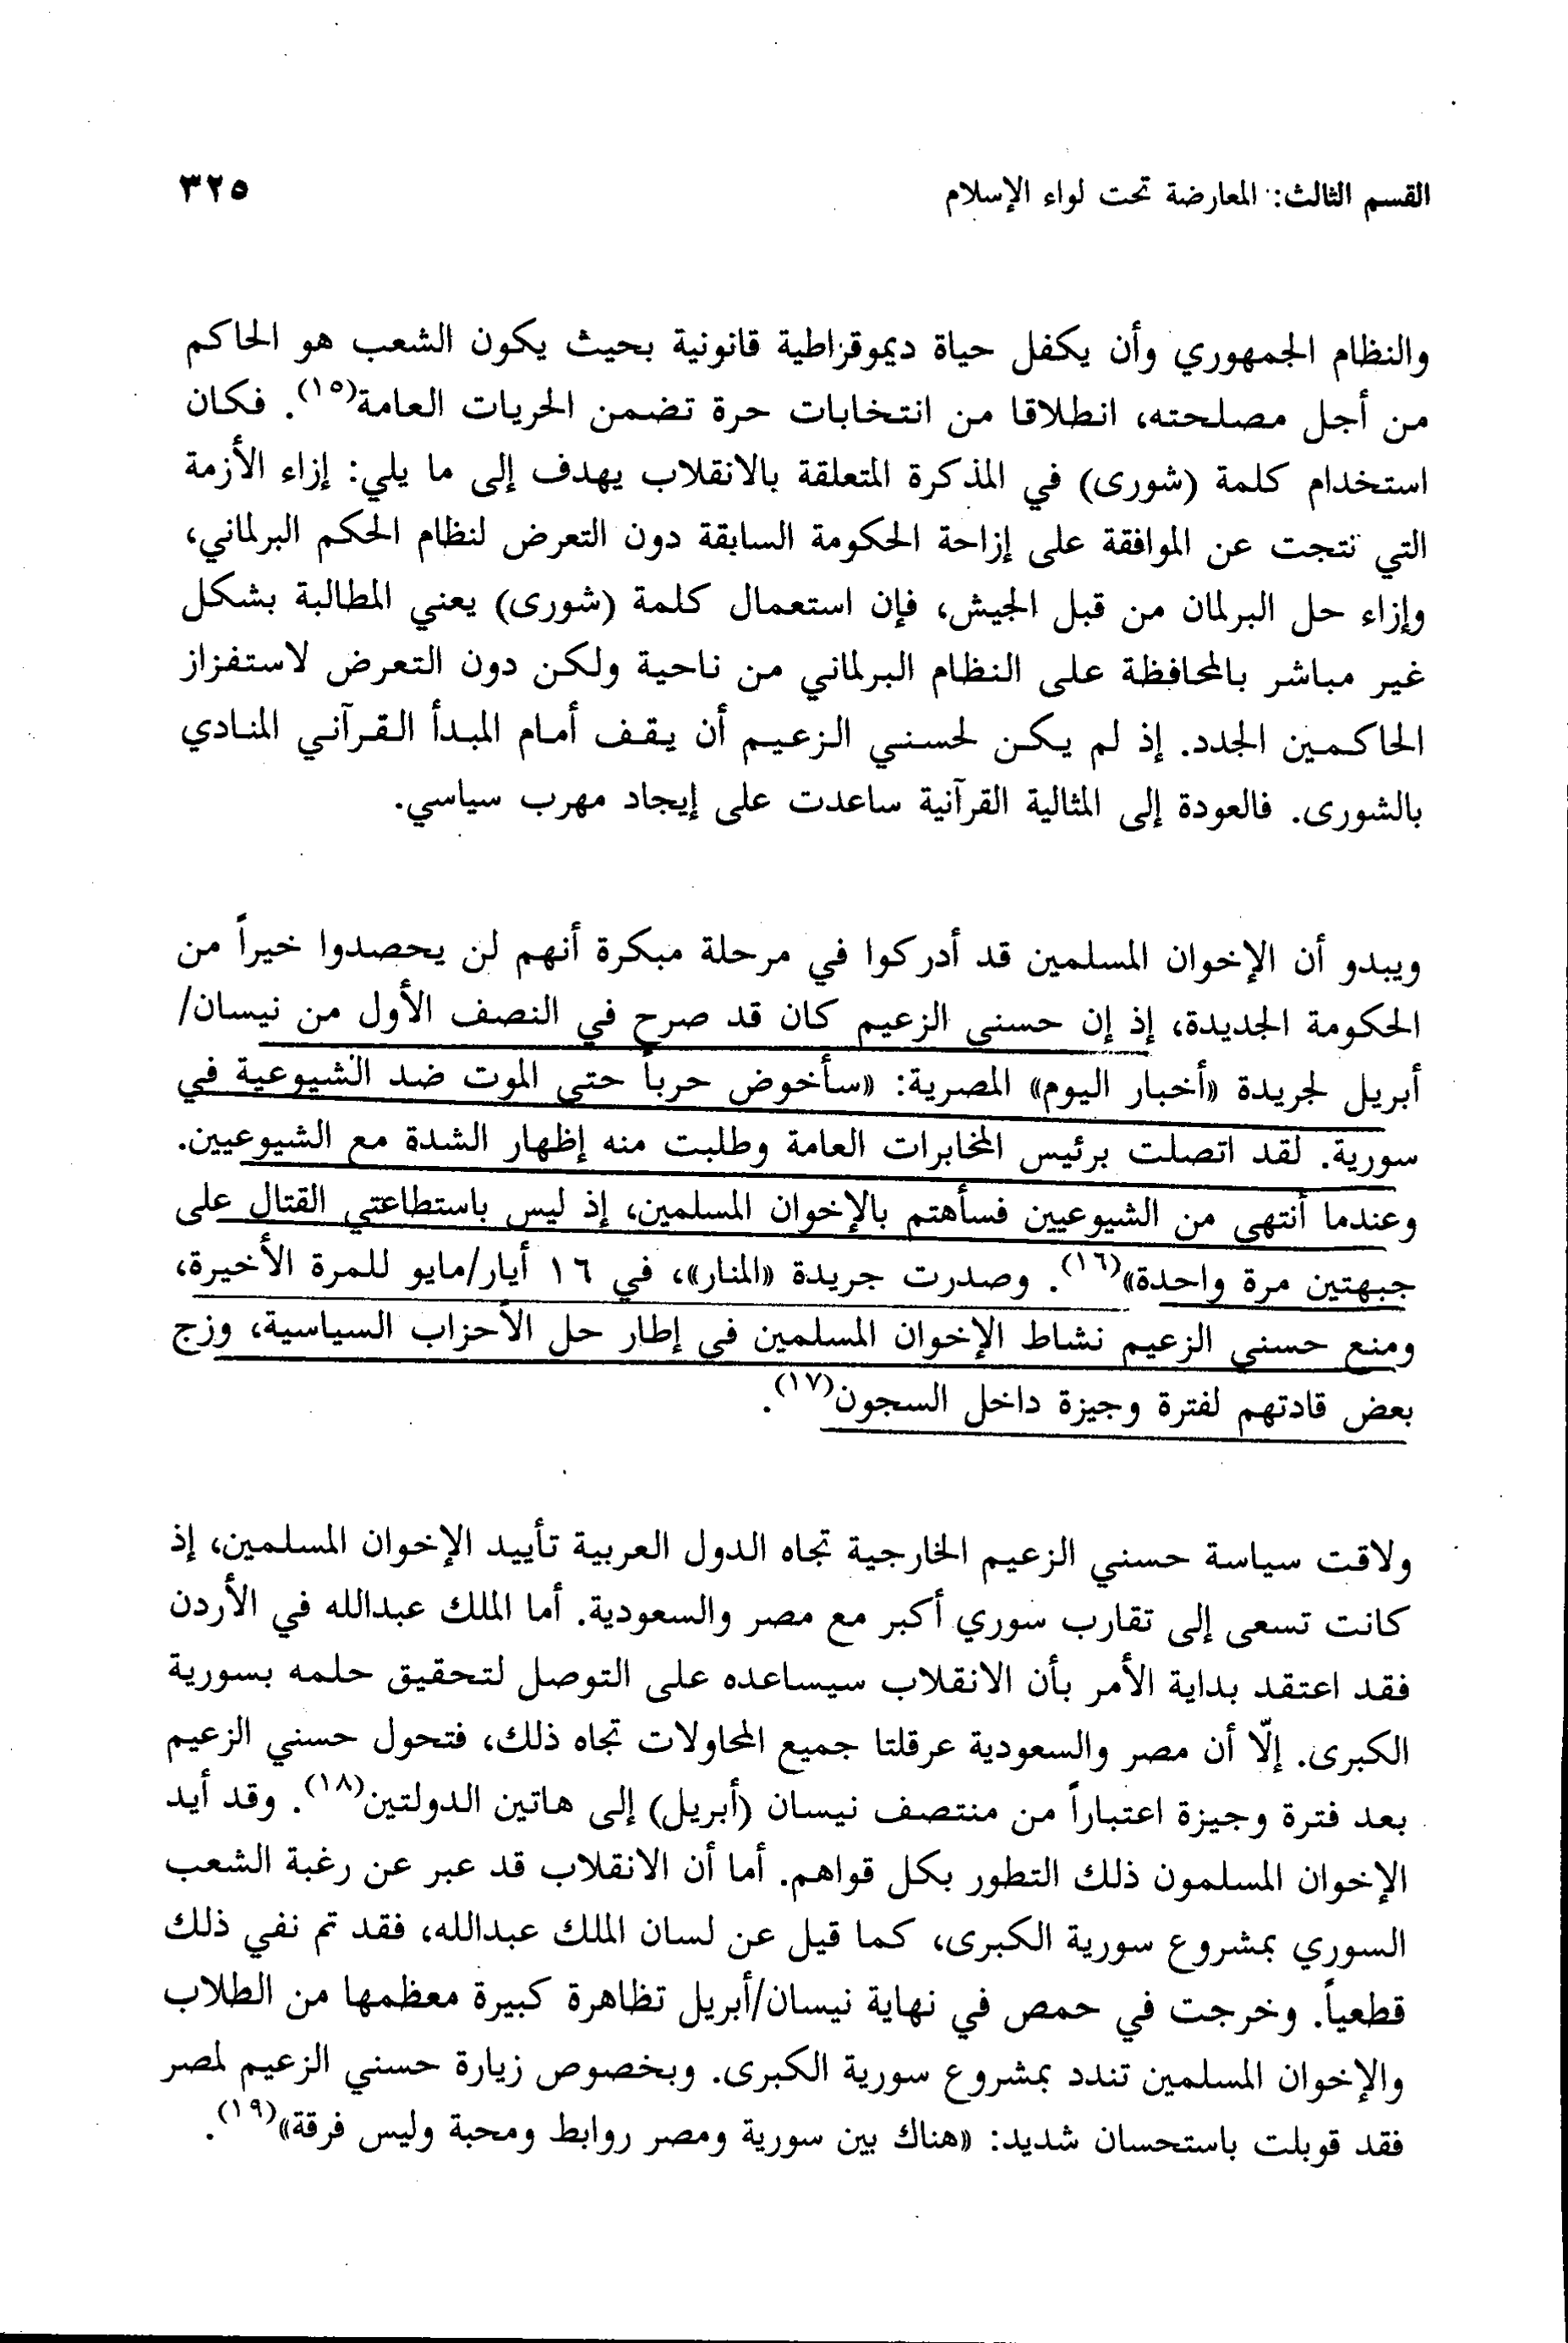 القسم الثالث: المعارضة تحت لواء الإسلام ٣٢٥
والنظام الجمهوري وأن يكفل حياة ديموقراطية قانونية بحيث يكون الشعب هو الحاكم
من أجل مصلحته، انطلاقا من انتخابات حرة تضمن الحريات العامة(١٥). فكان
استخدام كلمة (شورى) في المذكرة المتعلقة بالانقلاب يهدف إلى ما يلي: إزاء الأزمة
التي نتجت عن الموافقة على إزاحة الحكومة السابقة دون التعرض لنظام الحكم البرلماني،
وإزاء حل البرلمان من قبل الجيش، فإن استعمال كلمة (شورى) يعني المطالبة بشكل
غير مباشر بالمحافظة على النظام البرلماني من ناحية ولكن دون التعرض لاستفزاز
الحاكمين الجدد. إذ لم يكن لحسني الزعيم أن يقف أمام المبدأ القرآني المنادي
بالشورى. فالعودة إلى المثالية القرآنية ساعدت على إيجاد مهرب سياسي.
ويبدو أن الإخوان المسلمين قد أدركوا في مرحلة مبكرة أنهم لن يحصدوا خيراً من
الحكومة الجديدة، إذ إن حسني الزعيم كان قد صرح في النصف الأول من نيسان/
أبريل لجريدة «أخبار اليوم» المصرية: «سأخوض حرباً حتى الموت ضد الشيوعية في
سورية. لقد اتصلت برئيس المخابرات العامة وطلبت منه إظهار الشدة مع الشيوعيين.
وعندما أنتهي من الشيوعيين فسأهتم بالإخوان المسلمين، إذ ليس باستطاعتي القتال على
جبهتين مرة واحدة»(١٦). وصدرت جريدة «المنار»، في ١٦ أيار/مايو للمرة الأخيرة،
ومنع حسني الزعيم نشاط الإخوان المسلمين في إطار حل الأحزاب السياسية، وزج
بعض قادتهم لفترة وجيزة داخل السجون(١٧).
ولاقت سياسة حسني الزعيم الخارجية تجاه الدول العربية تأييد الإخوان المسلمين، إذ
كانت تسعى إلى تقارب سوري أكبر مع مصر والسعودية. أما الملك عبدالله في الأردن
فقد اعتقد بداية الأمر بأن الانقلاب سيساعده على التوصل لتحقيق حلمه بسورية
الكبرى. إلّا أن مصر والسعودية عرقلتا جميع المحاولات تجاه ذلك، فتحول حسني الزعيم
بعد فترة وجيزة اعتباراً من منتصف نيسان (أبريل) إلى هاتين الدولتين(١٨). وقد أيد
الإخوان المسلمون ذلك التطور بكل قواهم. أما أن الانقلاب قد عبر عن رغبة الشعب
السوري بمشروع سورية الكبرى، كما قيل عن لسان الملك عبدالله، فقد تم نفي ذلك
قطعياً. وخرجت في حمص في نهاية نيسان/أبريل تظاهرة كبيرة معظمها من الطلاب
والإخوان المسلمين تندد بمشروع سورية الكبرى. وبخصوص زيارة حسني الزعيم لمصر
فقد قوبلت باستحسان شديد: «هناك بين سورية ومصر روابط ومحبة وليس فرقة»(١٩).